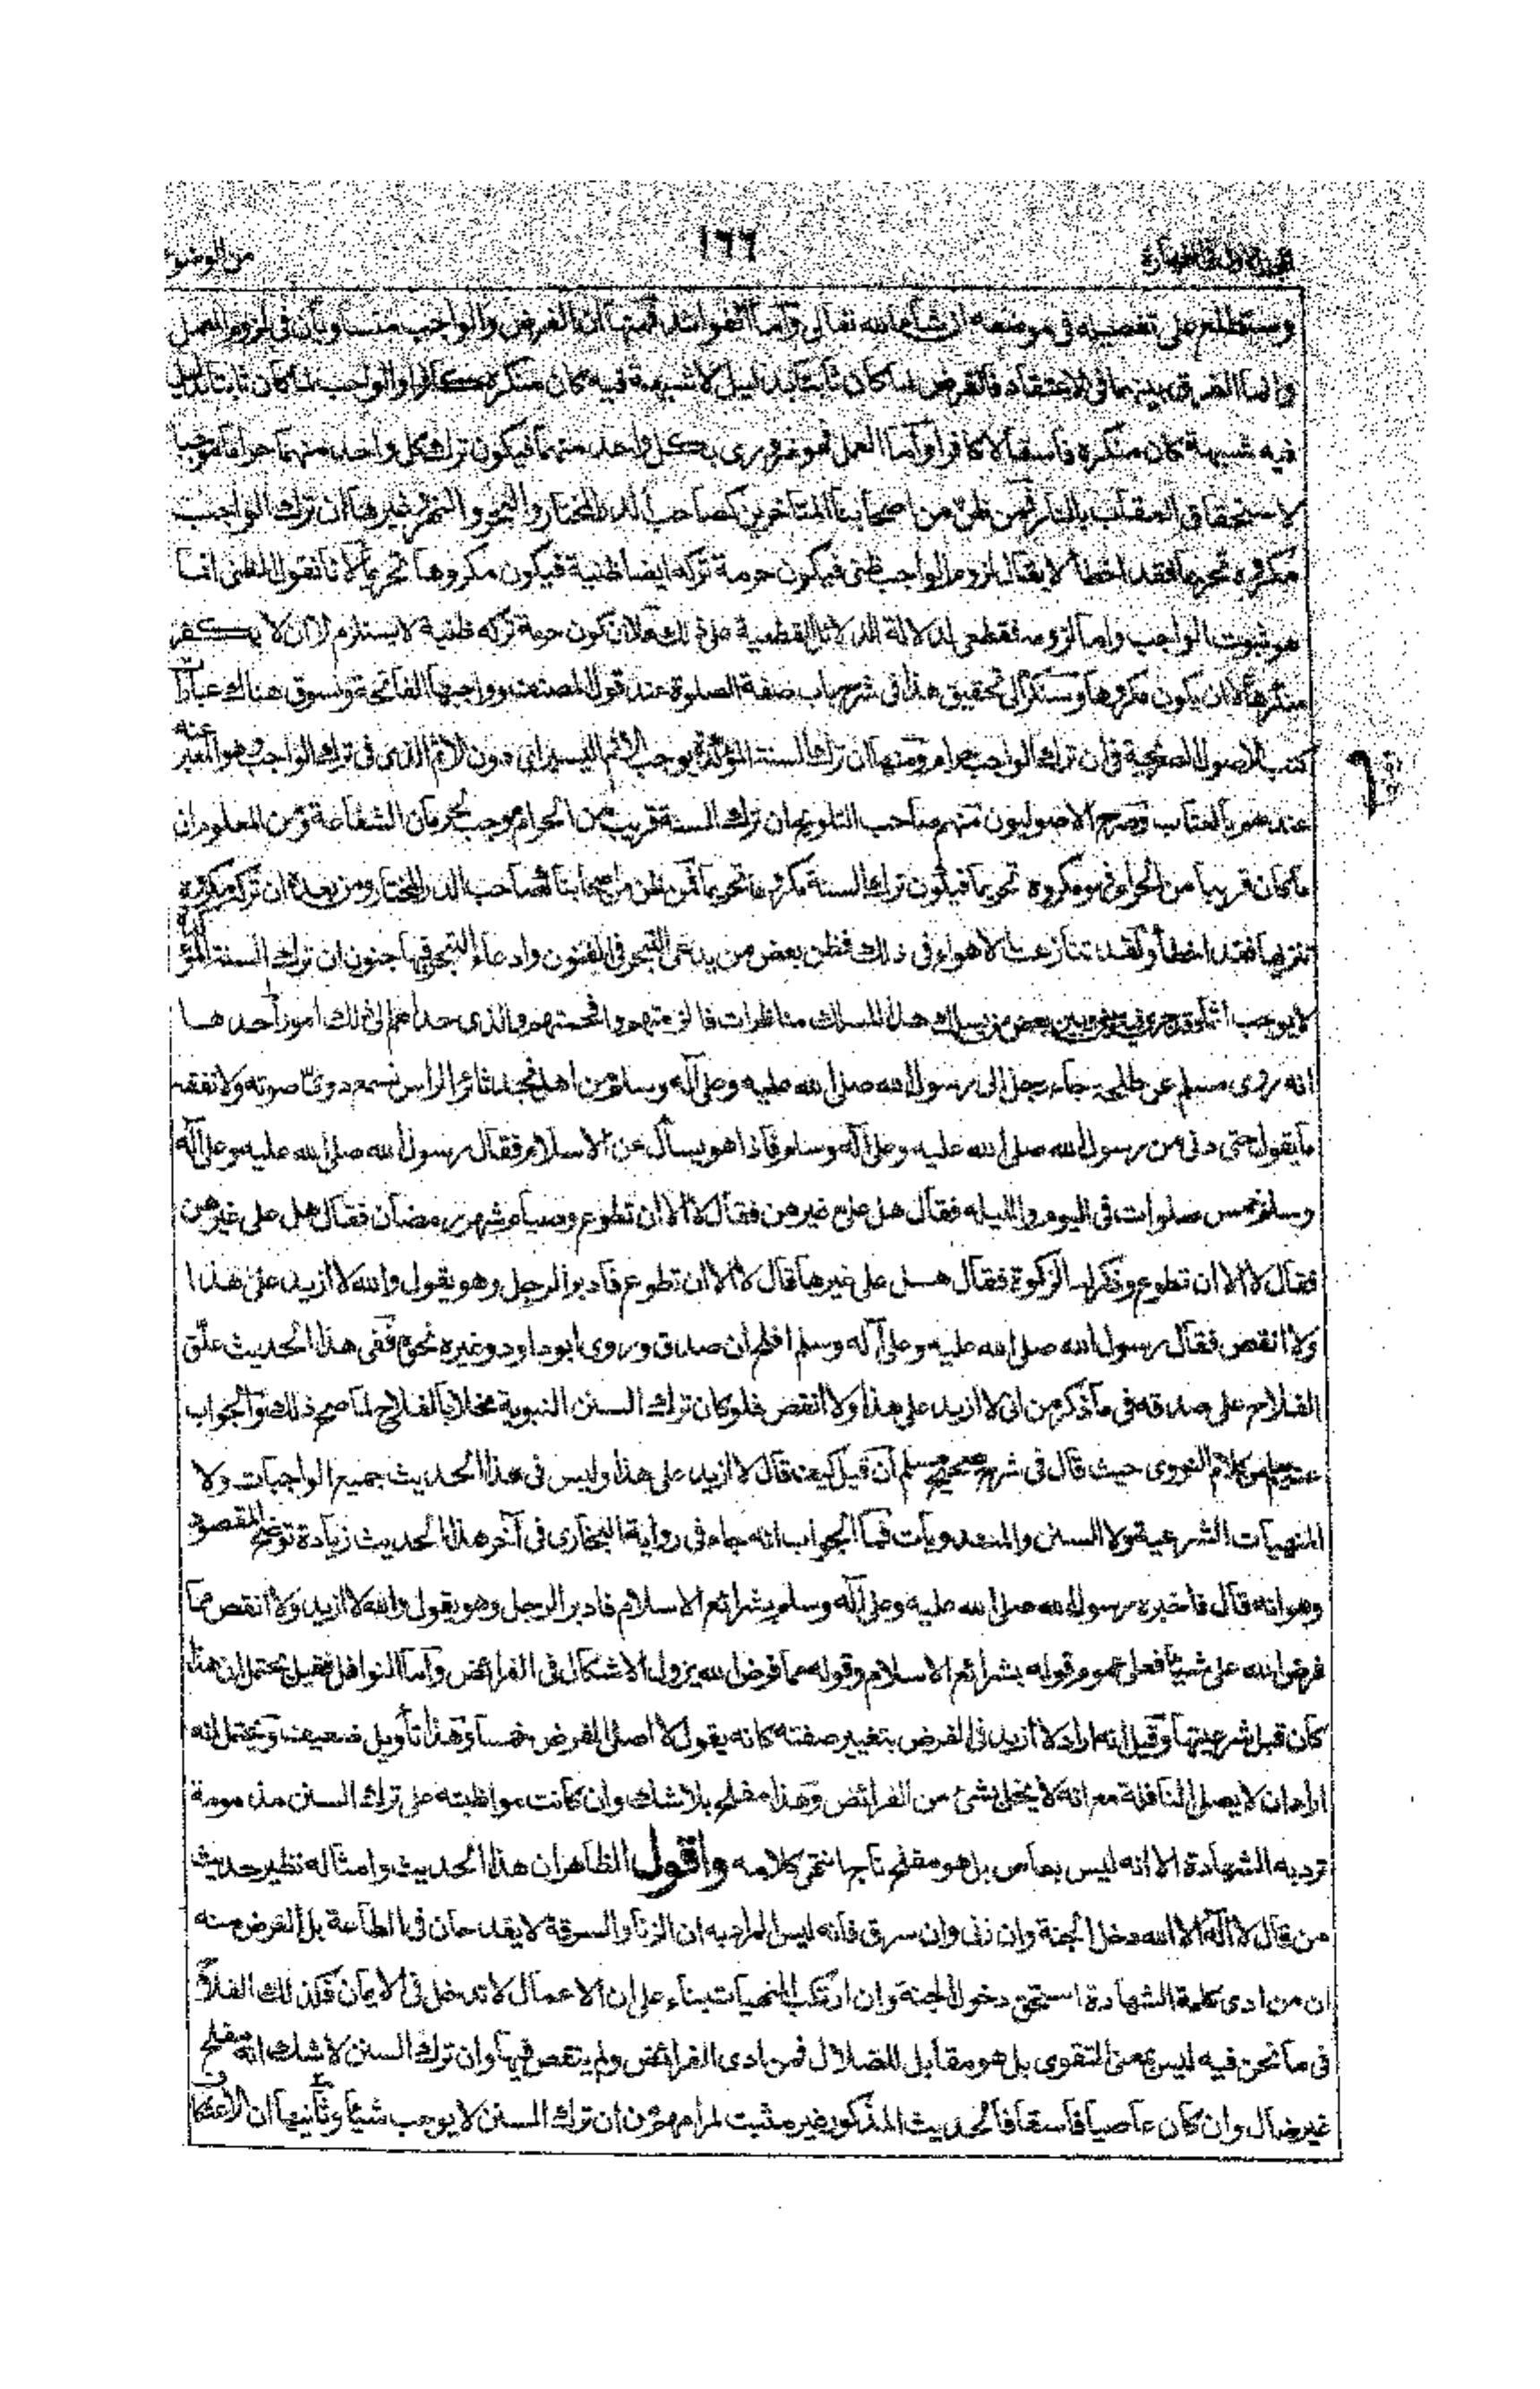 ١٦٦
من الوضوء
وستطلع على تفصيله في موضعه ان شاء الله تعالى واما الفوائد فمنها ان الفرض والواجب متساويان في لزوم العمل
وانما الفرق بينهما في الاعتقاد فالفرض لما كان ثابتا بدليل لا شبهة فيه كان منكره كافرا والواجب لما كان ثابتا بدليل
فيه شبهة كان منكره فاسقا لا كافرا واما العمل فهو ضروري بكل واحد منهما فيكون ترك كل واحد منهما حراما موجبا
لاستحقاق العقاب بالنار فمن ظن من اصحابنا المتاخرين كصاحب الدر المختار والبحر والنهر وغيرها ان ترك الواجب
مكروه تحريما فقد اخطأ لا يقال لزوم الواجب ظني فيكون حرمة تركه ايضا ظنية فيكون مكروها تحريما لانا نقول الظني انما
هو ثبوت الواجب واما لزومه فقطعي لدلالة الدلائل القطعية على ذلك فلان كون حرمة تركه ظنية لا يستلزم الا ان لا يكفر
منكرها لا ان يكون مكروها وستكر الى تحقيق هذا في شرح باب صفة الصلوة عند قول المصنف وواجبها الفاتحة ونسوق هناك عبارات
كتب الاصول الصريحة في ان ترك الواجب حرام ومنها ان ترك السنة المؤكدة يوجب الاثم اليسير اي دون الاثم الذي في ترك الواجب وهو المعبر عنه
عندهم بالعتاب وصرح الاصوليون منهم صاحب التلويح ان ترك السنة قريب من الحرام موجب لحرمان الشفاعة ومن المعلوم ان
ما كان قريبا من الحرام فهو مكروه تحريما فيكون ترك السنة مكروها تحريما فمن ظن من اصحابنا كصاحب الدر المختار ومن بعده ان تركه مكروه
تنزيها فقد اخطأ ولقد تنازعت الاهواء في ذلك فظن بعض من يدعى التبحر في الفنون وادعاء التبحر فيها جنون ان ترك السنة المؤكدة
لا يوجب اثما وقد جرى بيني وبين بعض من يسلك هذا المسلك مناظرات فالزمتهم وافحمتهم والذي حداهم الى ذلك امور احدها
انه روى مسلم عن طلحة جاء رجل الى رسول الله صلى الله عليه وعلى آله وسلم من اهل نجد ثائر الراس نسمع دوي صوته ولا نفقه
ما يقول حتى دنى من رسول الله صلى الله عليه وعلى آله وسلم فاذا هو يسأل عن الاسلام فقال رسول الله صلى الله عليه وعلى آله
وسلم خمس صلوات في اليوم والليله فقال هل علي غيرهن فقال لا الا ان تطوع وصيام شهر رمضان فقال هل على غيرهن
فقال لا الا ان تطوع وذكر له الزكوة فقال هل على غيرها قال لا الا ان تطوع فادبر الرجل وهو يقول والله لا ازيد على هذا
ولا انقص فقال رسول الله صلى الله عليه وعلى آله وسلم افلح ان صدق وروى ابو داود وغيره نحوه ففي هذا الحديث علق
الفلاح على صدقه في ما ذكر من انى لا ازيد على هذا ولا انقص فلو كان ترك السنن النبوية مخلا بالفلاح لما صح ذلك والجواب
عنه يعلم من كلام النووى حيث قال في شرح صحيح مسلم ان قيل كيف قال لا ازيد على هذا وليس في هذا الحديث جميع الواجبات ولا
المنهيات الشرعية ولا السنن والمندوبات فالجواب انه جاء في رواية البخاري في آخر هذا الحديث زيادة توضح المقصود
وهو انه قال فاخبره رسول الله صلى الله عليه وعلى آله وسلم بشرائع الاسلام فادبر الرجل وهو يقول والله لا ازيد ولا انقص مما
فرض الله على شيئا فعلى عموم قوله بشرائع الاسلام وقوله مما فرض الله يزول الاشكال في الفرائض واما النوافل فقيل يحتمل ان هذا
كان قبل شرعيتها وقيل انه اراد لا ازيد في الفرض بتغيير صفته كانه يقول لا اصلى الفرض خمسا وهذا تأويل ضعيف ويحتمل انه
اراد ان لا يصلى النافلة مع انه لا يخل بشئ من الفرائض وهذا مفلح بلا شك وان كانت مواظبته على ترك السنن مذمومة
ترد به الشهادة الا انه ليس بعاص بل هو مفلح ناج انتهى كلامه واقول الظاهر ان هذا الحديث وامثاله نظير حديث
من قال لا اله الا الله دخل الجنة وان زنى وان سرق فانه ليس المراد به ان الزنا والسرقة لا يقدحان في الطاعة بل الغرض منه
ان من ادى كلمة الشهادة استحق دخول الجنة وان ارتكب المنهيات بناء على ان الاعمال لا تدخل في الايمان فكذلك الفلاح
في ما نحن فيه ليس بمعنى التقوى بل هو مقابل للضلال فمن ادى الفرائض ولم ينقص فيها وان ترك السنن لا شك انه مفلح
غير ضال وان كان عاصيا فاسقا فالحديث المذكور غير مثبت لمرامهم من ان ترك السنن لا يوجب شيئا وثانيها ان الاعتكاف